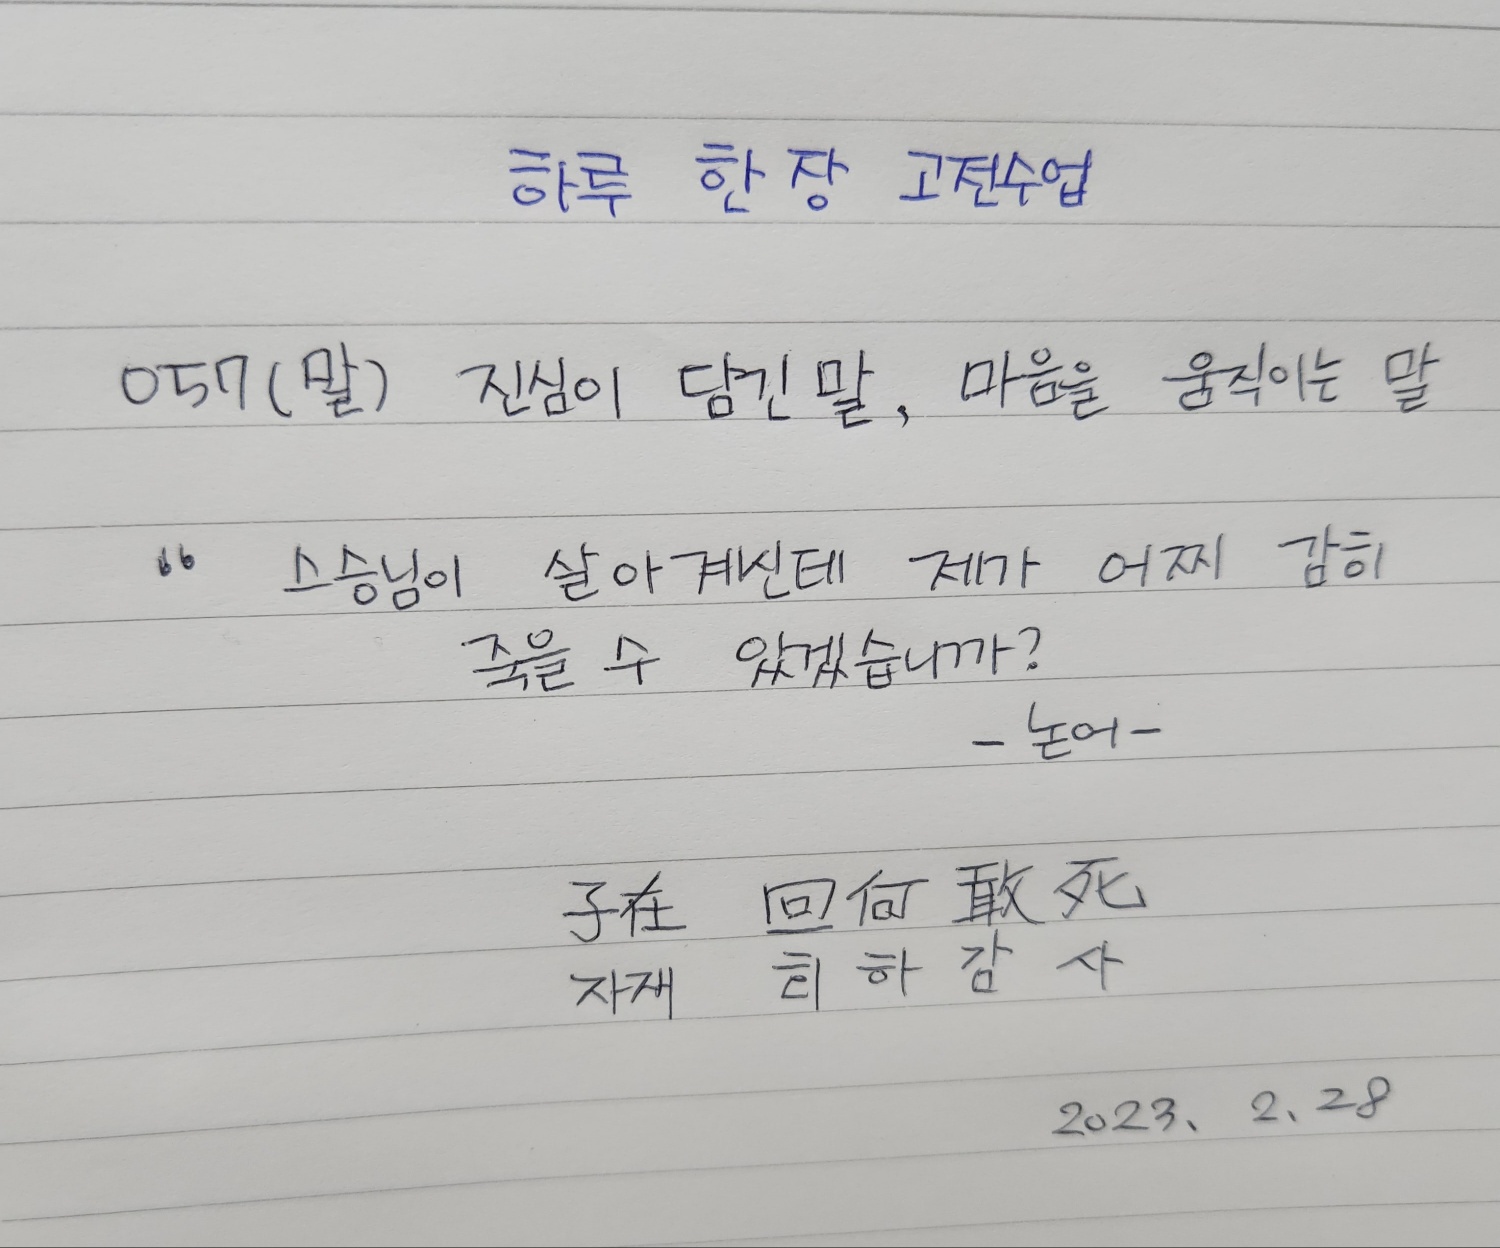 하루 한 장 고전수업
057(말) 진심이 담긴 말, 마음을 움직이는 말
“ 스승님이 살아계신데 제가 어찌 감히
죽을 수 있겠습니까?
- 논어 -
子在 回何敢死
자재 회하감사
2023. 2. 28